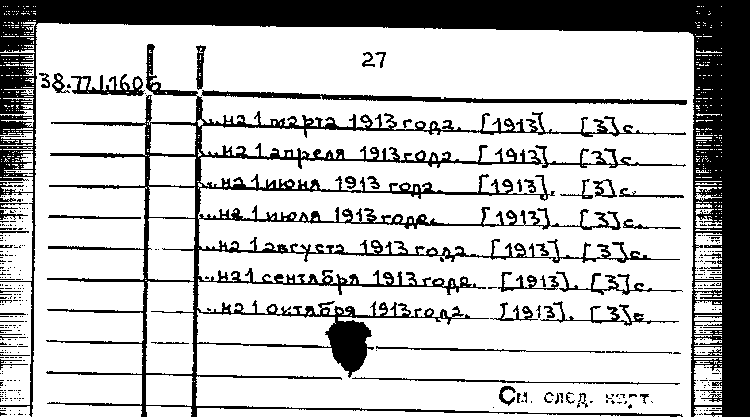 27
38.77.1.160б
...на 1 марта 1913 года. [1913]. [3]с.
...на 1 апреля 1913 года. [1913]. [3]с.
...на 1 июня 1913 года. [1913]. [3]с.
...на 1 июля 1913 года. [1913]. [3]с.
...на 1 августа 1913 года. [1913]. [3]с.
...на 1 сентября 1913 года. [1913]. [3]с.
...на 1 октября 1913 года. [1913]. [3]с.
См. след. карт.